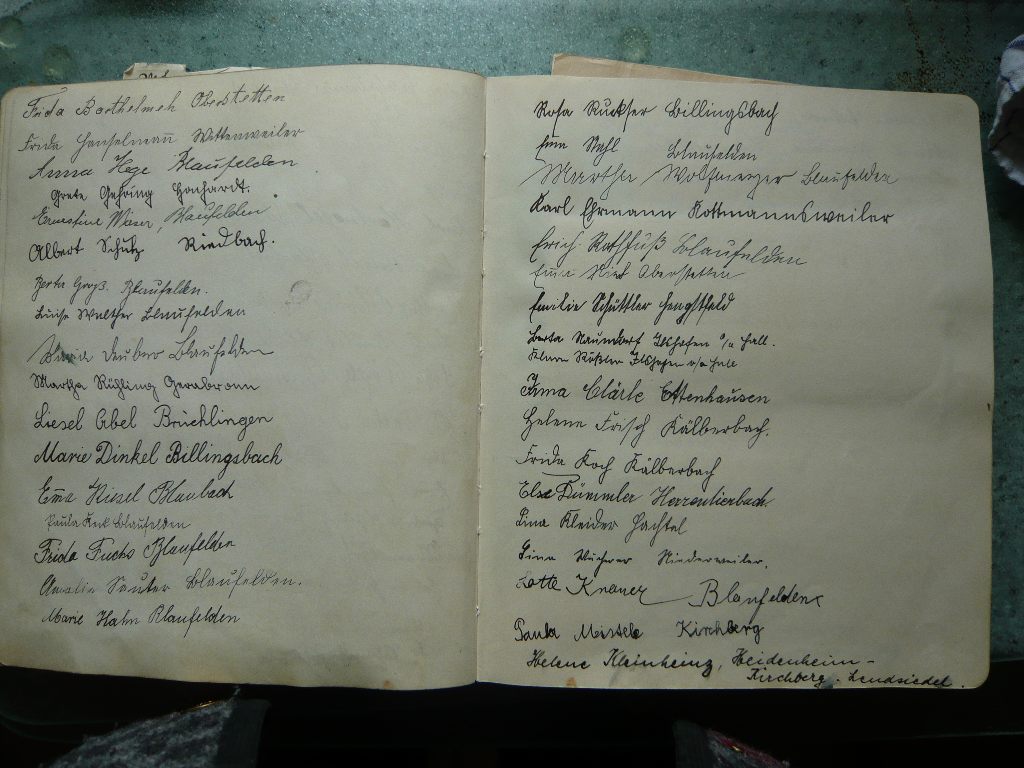 Frida Barthelmeh Oberstetten
Frida Hanselmann Wittenweiler
Anna Hege Blaufelden
Grete Gehring Gerhardt.
Ernestine Wieser, Blaufelden.
Albert Schütz Riedbach.
Berta Groß. Blaufelden.
Luise Walther Blaufelden
Maria Deubner Blaufelden
Martha Rühling Gerabronn
Liesel Abel Brüchlingen
Marie Dinkel Billingsbach
Emma Kiesel Blaubach
Paula Keck Blaufelden
Frida Fuchs Blaufelden
Amalie Sauter Blaufelden.
Marie Hahn Blaufelden
Rosa Ruckser Billingsbach
Emma Stahl Blaufelden
Martha Wolfmeyer Blaufelden
Karl Ehrmann Kottmannsweiler
Erich Rothfuß Blaufelden
Emma Oberstetten
Emilie Schüttler Hengstfeld
Berta Naundorf Ilshofen o/a Hall.
Rößler Ilshofen o/a Hall
Irma Clärle Ettenhausen
Helene Frisch Kälberbach.
Frida Koch Kälberbach
Else Dümmler Herrentierbach
Lina Kleider Hachtel
Lina Bucherer Niederweiler.
Lotte Knauer Blaufelden
Paula Meistele Kirchberg
Helene Kleinheinz, Heidenheim-
Kirchberg. Lendsiedel.